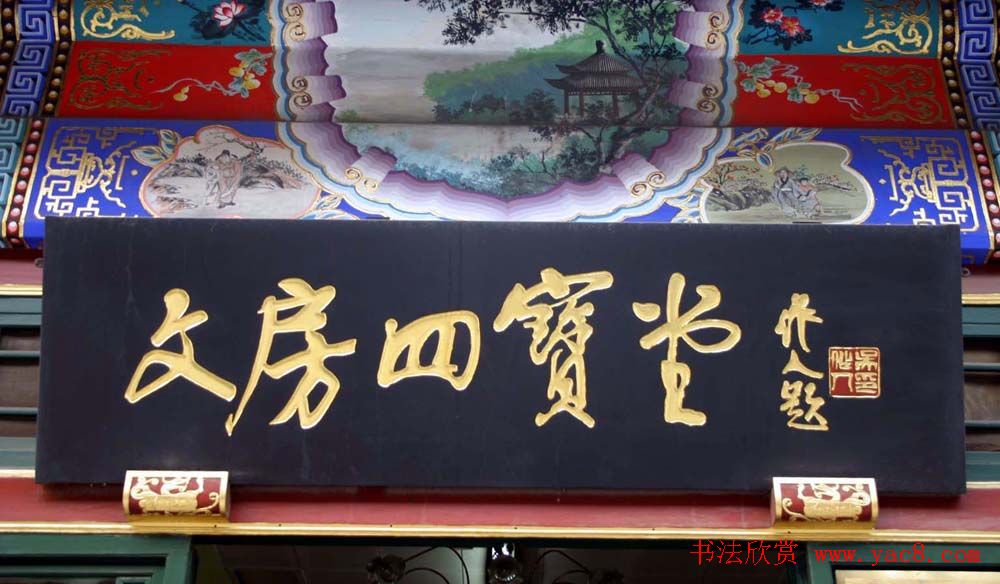 文房四寶堂
作人题
书法欣赏 www.yac8.com